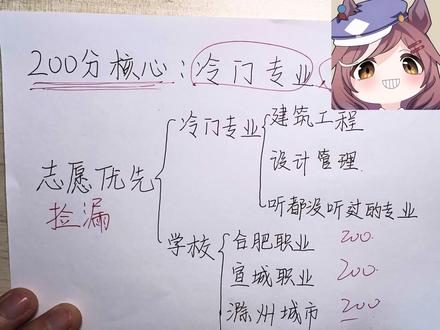 200分核心:冷门专业、
志愿优先
捡漏
冷门专业
建筑工程
设计管理
听都没听过的专业
学校
合肥职业 200
宣城职业 200
滁州城市 200